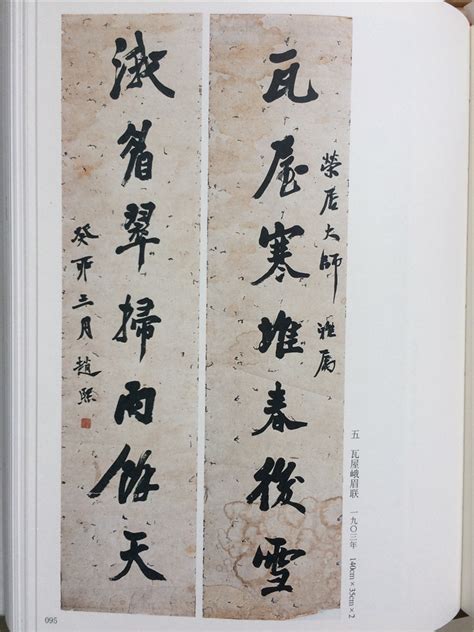 瓦屋寒堆春後雪
榮居大師 雅屬
涐眉翠掃雨餘天
癸卯三月趙熙
五 瓦屋峨眉联 一九〇三年 140cm×35cm×2
095